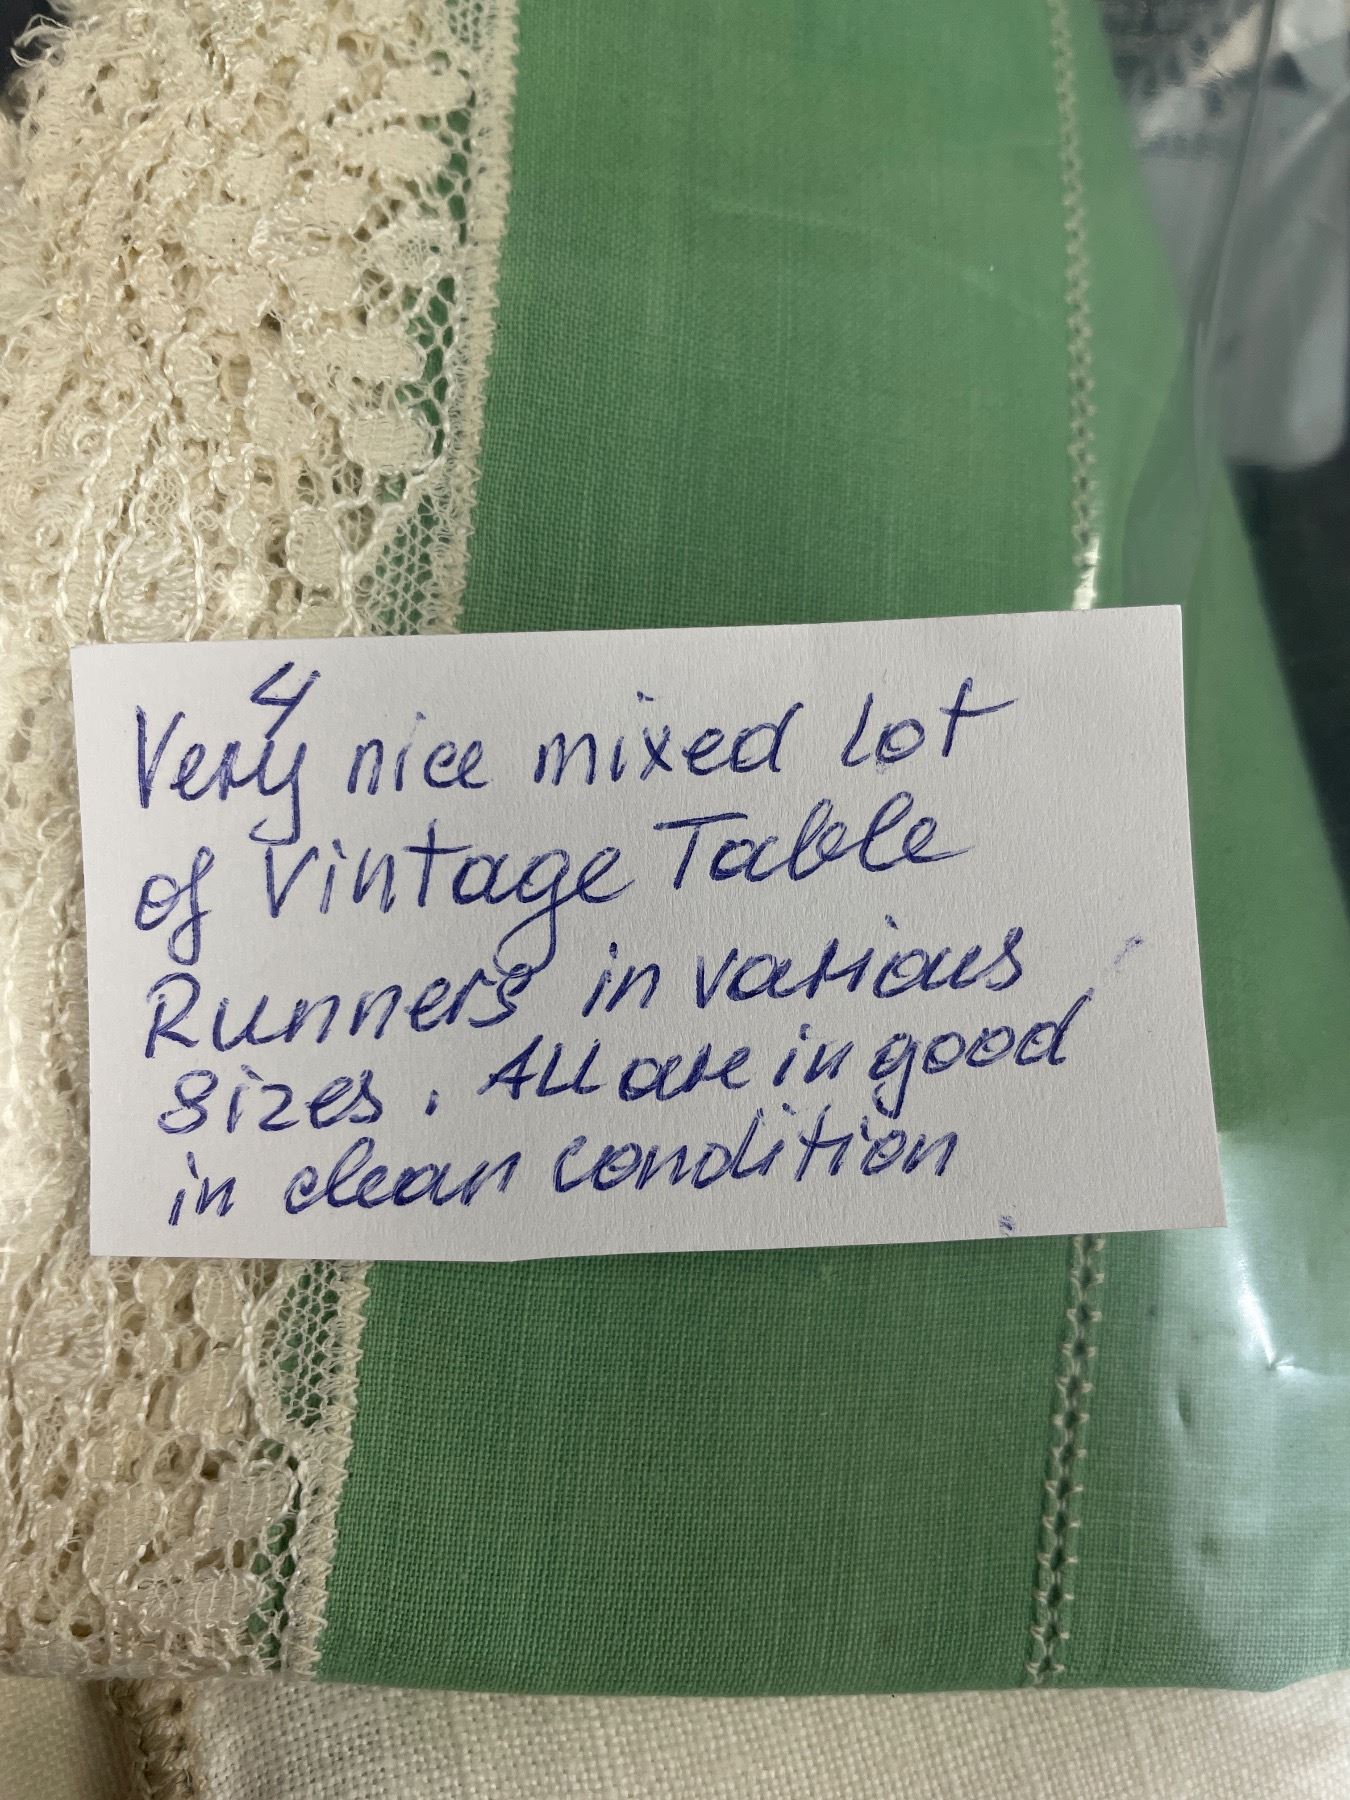 4
Very nice mixed lot
of Vintage Table
Runners in various
sizes. All are in good
in clean condition